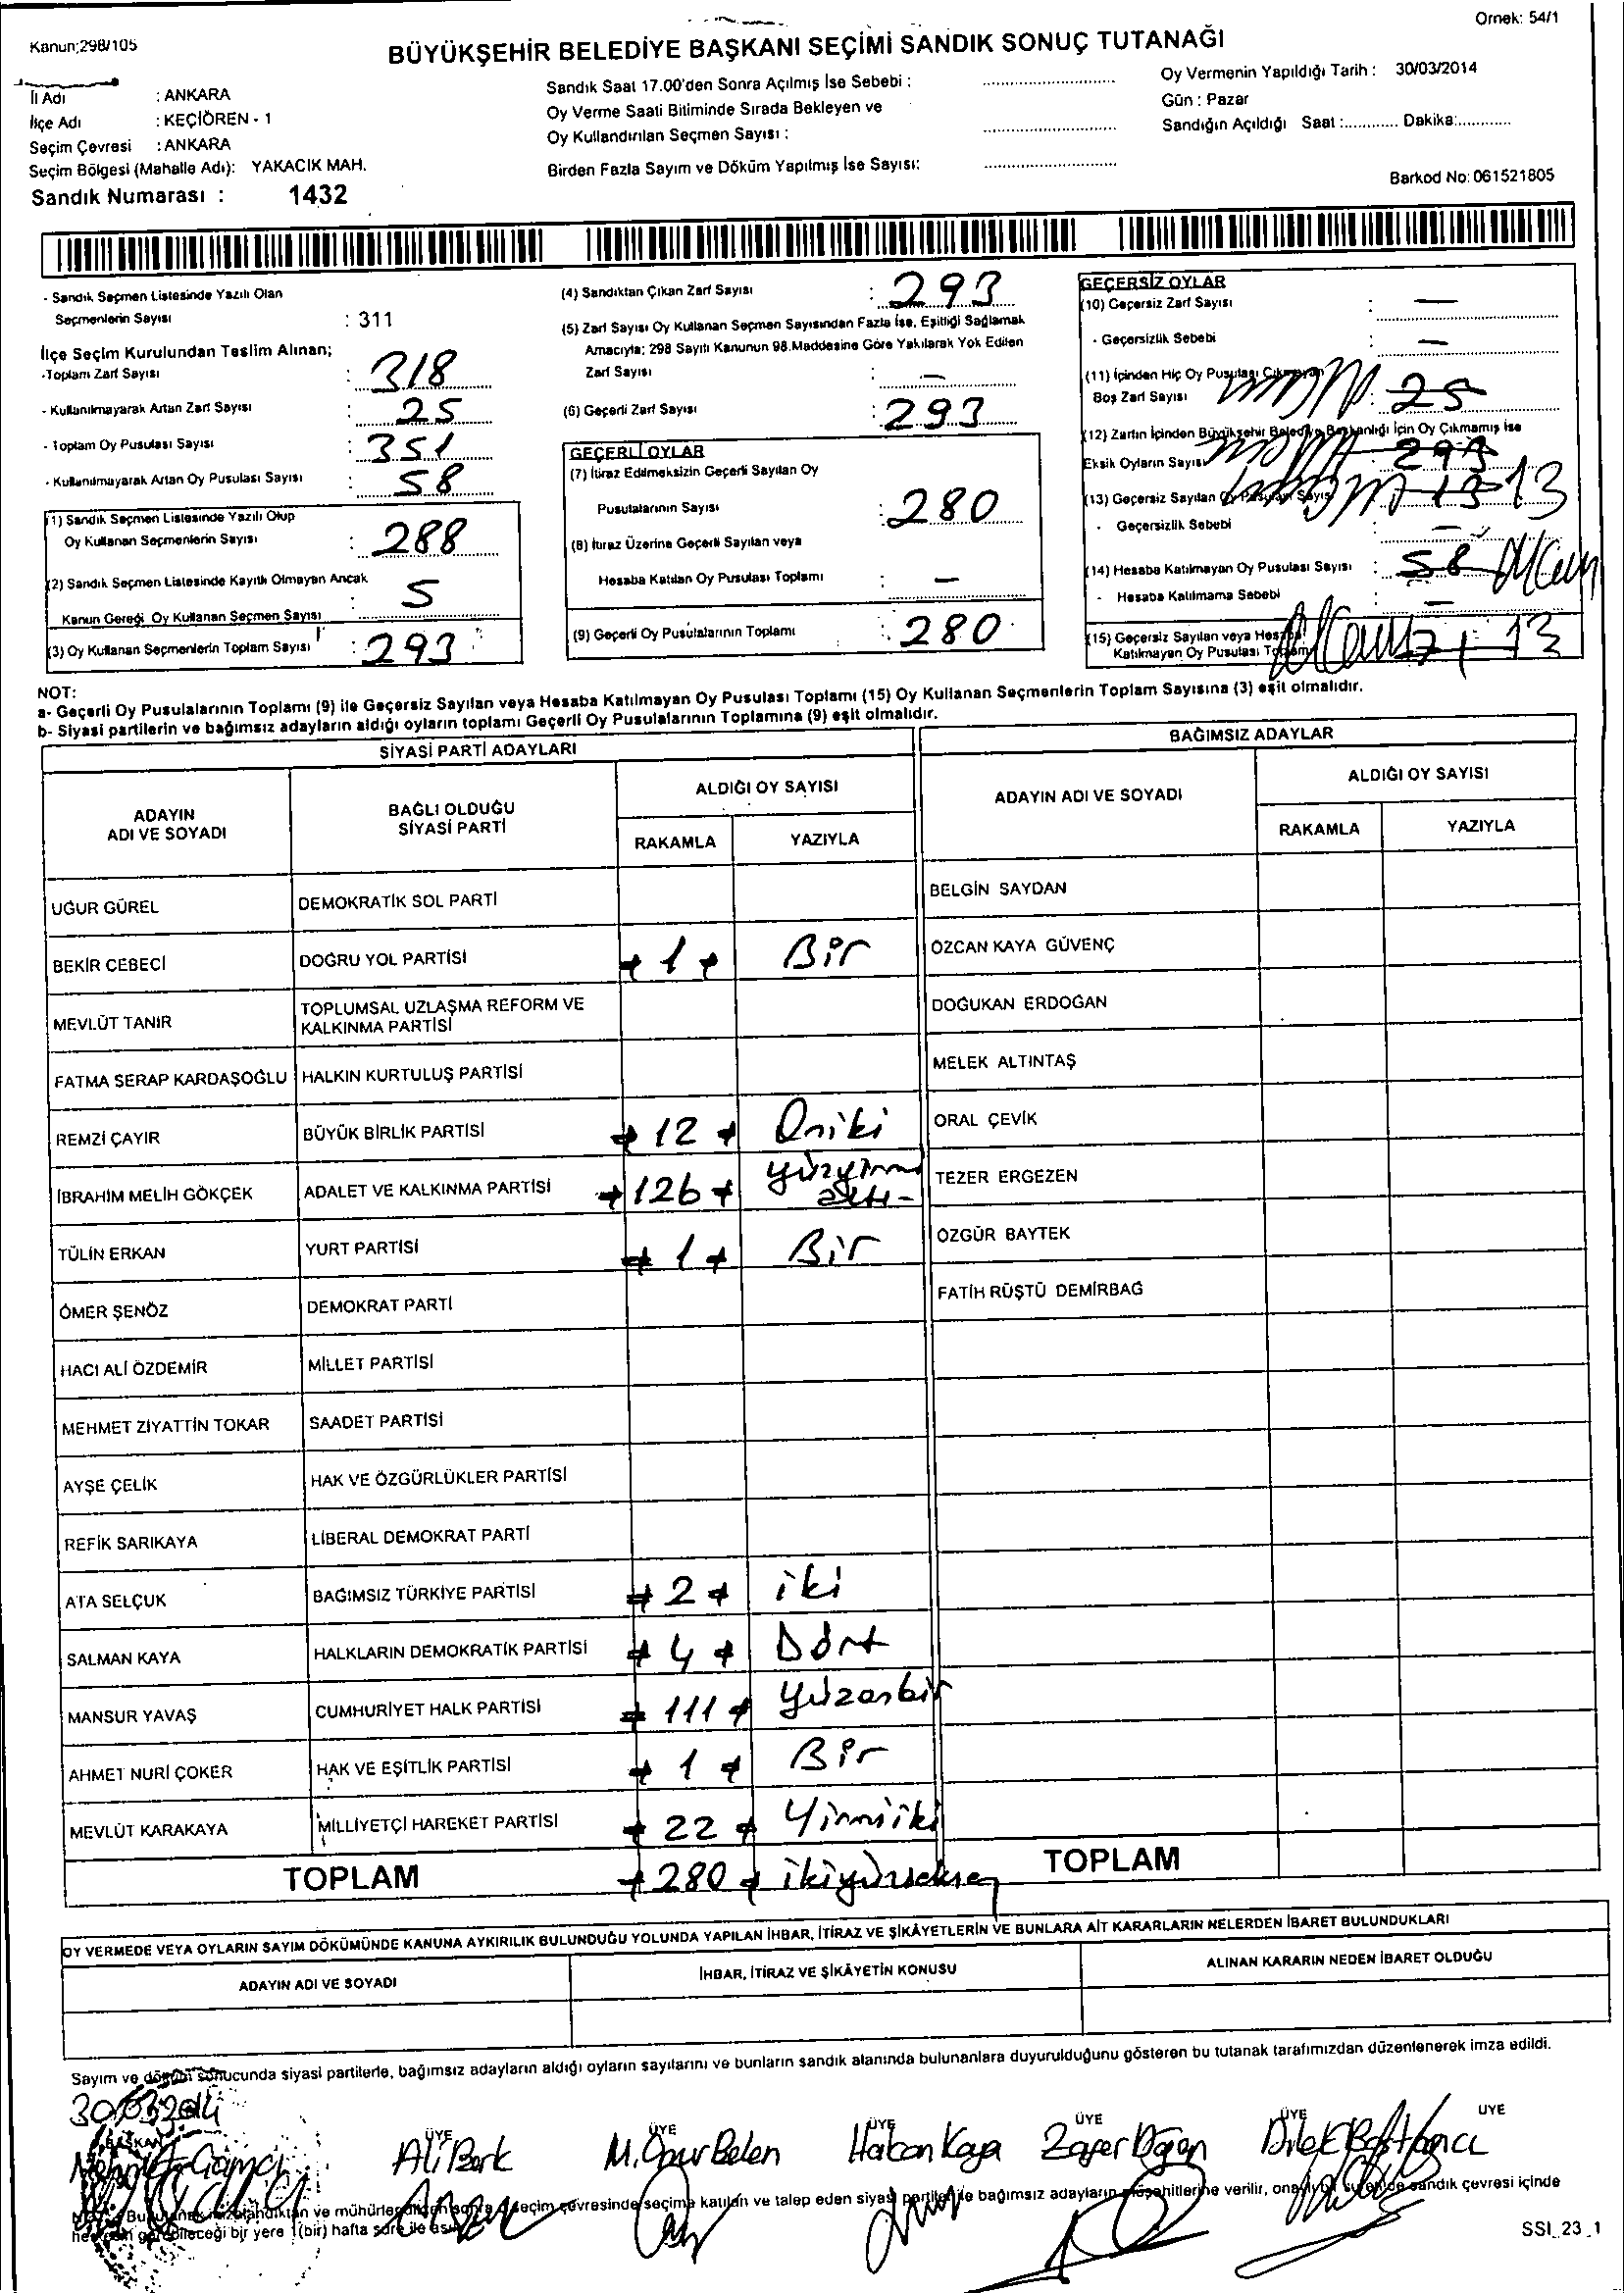 Ornek: 54/1
Kanun;298/105
BÜYÜKŞEHİR BELEDİYE BAŞKANI SEÇİMİ SANDIK SONUÇ TUTANAĞI
İl Adı : ANKARA
İlçe Adı : KEÇİÖREN - 1
Seçim Çevresi : ANKARA
Seçim Bölgesi (Mahalle Adı): YAKACIK MAH.
Sandık Numarası : 1432
Sandık Saat 17.00'den Sonra Açılmış İse Sebebi :
Oy Verme Saati Bitiminde Sırada Bekleyen ve
Oy Kullandırılan Seçmen Sayısı :
Birden Fazla Sayım ve Döküm Yapılmış İse Sayısı:
Oy Vermenin Yapıldığı Tarih : 30/03/2014
Gün : Pazar
Sandığın Açıldığı Saat :............ Dakika:............
Barkod No: 061521805
- Sandık Seçmen Listesinde Yazılı Olan
Seçmenlerin Sayısı : 311
İlçe Seçim Kurulundan Teslim Alınan;
-Toplam Zarf Sayısı : 318
- Kullanılmayarak Artan Zarf Sayısı : 25
- Toplam Oy Pusulası Sayısı : 351
- Kullanılmayarak Artan Oy Pusulası Sayısı : 58
(1) Sandık Seçmen Listesinde Yazılı Olup
Oy Kullanan Seçmenlerin Sayısı : 288
(2) Sandık Seçmen Listesinde Kayıtlı Olmayan Ancak
Kanun Gereği Oy Kullanan Seçmen Sayısı : 5
(3) Oy Kullanan Seçmenlerin Toplam Sayısı : 293
(4) Sandıktan Çıkan Zarf Sayısı : 293
(5) Zarf Sayısı Oy Kullanan Seçmen Sayısından Fazla İse, Eşitliği Sağlamak
Amacıyla; 298 Sayılı Kanunun 98.Maddesine Göre Yakılarak Yok Edilen
Zarf Sayısı : —
(6) Geçerli Zarf Sayısı : 293
GEÇERLİ OYLAR
(7) İtiraz Edilmeksizin Geçerli Sayılan Oy
Pusulalarının Sayısı : 280
(8) İtiraz Üzerine Geçerli Sayılan veya
Hesaba Katılan Oy Pusulası Toplamı : —
(9) Geçerli Oy Pusulalarının Toplamı : 280
GEÇERSİZ OYLAR
(10) Geçersiz Zarf Sayısı : —
- Geçersizlik Sebebi : —
(11) İçinden Hiç Oy Pusulası Çıkmayan
Boş Zarf Sayısı : 25
(12) Zarfın İçinden Büyükşehir Belediye Başkanlığı İçin Oy Çıkmamış ise
Eksik Oyların Sayısı 293
(13) Geçersiz Sayılan Oy Pusulası Sayısı 13 13
- Geçersizlik Sebebi : —
(14) Hesaba Katılmayan Oy Pusulası Sayısı : 58
- Hesaba Katılmama Sebebi : —
(15) Geçersiz Sayılan veya Hesaba
Katılmayan Oy Pusulası Toplamı 71 13
NOT:
a- Geçerli Oy Pusulalarının Toplamı (9) ile Geçersiz Sayılan veya Hesaba Katılmayan Oy Pusulası Toplamı (15) Oy Kullanan Seçmenlerin Toplam Sayısına (3) eşit olmalıdır.
b- Siyasi partilerin ve bağımsız adayların aldığı oyların toplamı Geçerli Oy Pusulalarının Toplamına (9) eşit olmalıdır.
SİYASİ PARTİ ADAYLARI
ADAYIN ADI VE SOYADI
BAĞLI OLDUĞU SİYASİ PARTİ
ALDIĞI OY SAYISI
RAKAMLA YAZIYLA
UĞUR GÜREL DEMOKRATİK SOL PARTİ
BEKİR CEBECİ DOĞRU YOL PARTİSİ 1 Bir
MEVLÜT TANIR TOPLUMSAL UZLAŞMA REFORM VE KALKINMA PARTİSİ
FATMA SERAP KARDAŞOĞLU HALKIN KURTULUŞ PARTİSİ
REMZİ ÇAYIR BÜYÜK BİRLİK PARTİSİ 12 Oniki
İBRAHİM MELİH GÖKÇEK ADALET VE KALKINMA PARTİSİ 126 yüzyirmi altı-
TÜLİN ERKAN YURT PARTİSİ 1 Bir
ÖMER ŞENÖZ DEMOKRAT PARTİ
HACI ALİ ÖZDEMİR MİLLET PARTİSİ
MEHMET ZİYATTİN TOKAR SAADET PARTİSİ
AYŞE ÇELİK HAK VE ÖZGÜRLÜKLER PARTİSİ
REFİK SARIKAYA LİBERAL DEMOKRAT PARTİ
ATA SELÇUK BAĞIMSIZ TÜRKİYE PARTİSİ 2 iki
SALMAN KAYA HALKLARIN DEMOKRATİK PARTİSİ 4 Dört
MANSUR YAVAŞ CUMHURİYET HALK PARTİSİ 111 yüzonbir
AHMET NURİ ÇOKER HAK VE EŞİTLİK PARTİSİ 1 Bir
MEVLÜT KARAKAYA MİLLİYETÇİ HAREKET PARTİSİ 22 Yirmiiki
TOPLAM 280 ikiyüzseksen
BAĞIMSIZ ADAYLAR
ADAYIN ADI VE SOYADI
ALDIĞI OY SAYISI
RAKAMLA YAZIYLA
BELGİN SAYDAN
ÖZCAN KAYA GÜVENÇ
DOĞUKAN ERDOĞAN
MELEK ALTINTAŞ
ORAL ÇEVİK
TEZER ERGEZEN
ÖZGÜR BAYTEK
FATİH RÜŞTÜ DEMİRBAĞ
TOPLAM
OY VERMEDE VEYA OYLARIN SAYIM DÖKÜMÜNDE KANUNA AYKIRILIK BULUNDUĞU YOLUNDA YAPILAN İHBAR, İTİRAZ VE ŞİKÂYETLERİN VE BUNLARA AİT KARARLARIN NELERDEN İBARET BULUNDUKLARI
ADAYIN ADI VE SOYADI İHBAR, İTİRAZ VE ŞİKÂYETİN KONUSU ALINAN KARARIN NEDEN İBARET OLDUĞU
Sayım ve döküm sonucunda siyasi partilerle, bağımsız adayların aldığı oyların sayılarını ve bunların sandık alanında bulunanlara duyurulduğunu gösteren bu tutanak tarafımızdan düzenlenerek imza edildi.
30.03.2014
BAŞKAN ÜYE ÜYE ÜYE ÜYE ÜYE ÜYE
Ali Berk M. Onur Belen Hakan Kaya Zafer Doğan Dilek Bostancı
ve mühürlendikten sonra seçim çevresinde seçime katılan ve talep eden siyasi partiler ile bağımsız adayların müşahitlerine verilir, sandık çevresi içinde
herkesin görebileceği bir yere 1(bir) hafta süre ile asılır
SSI_23_1